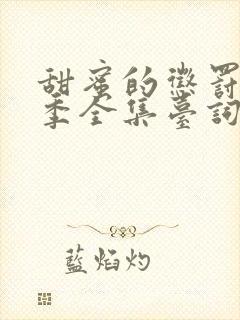 甜蜜的懲罰
季全集臺詞
藍焰灼